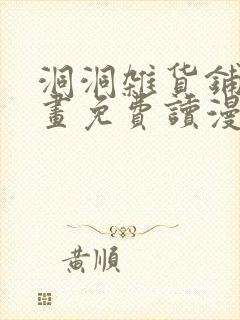 洞洞雜貨鋪
畫免費讀漫
黃順